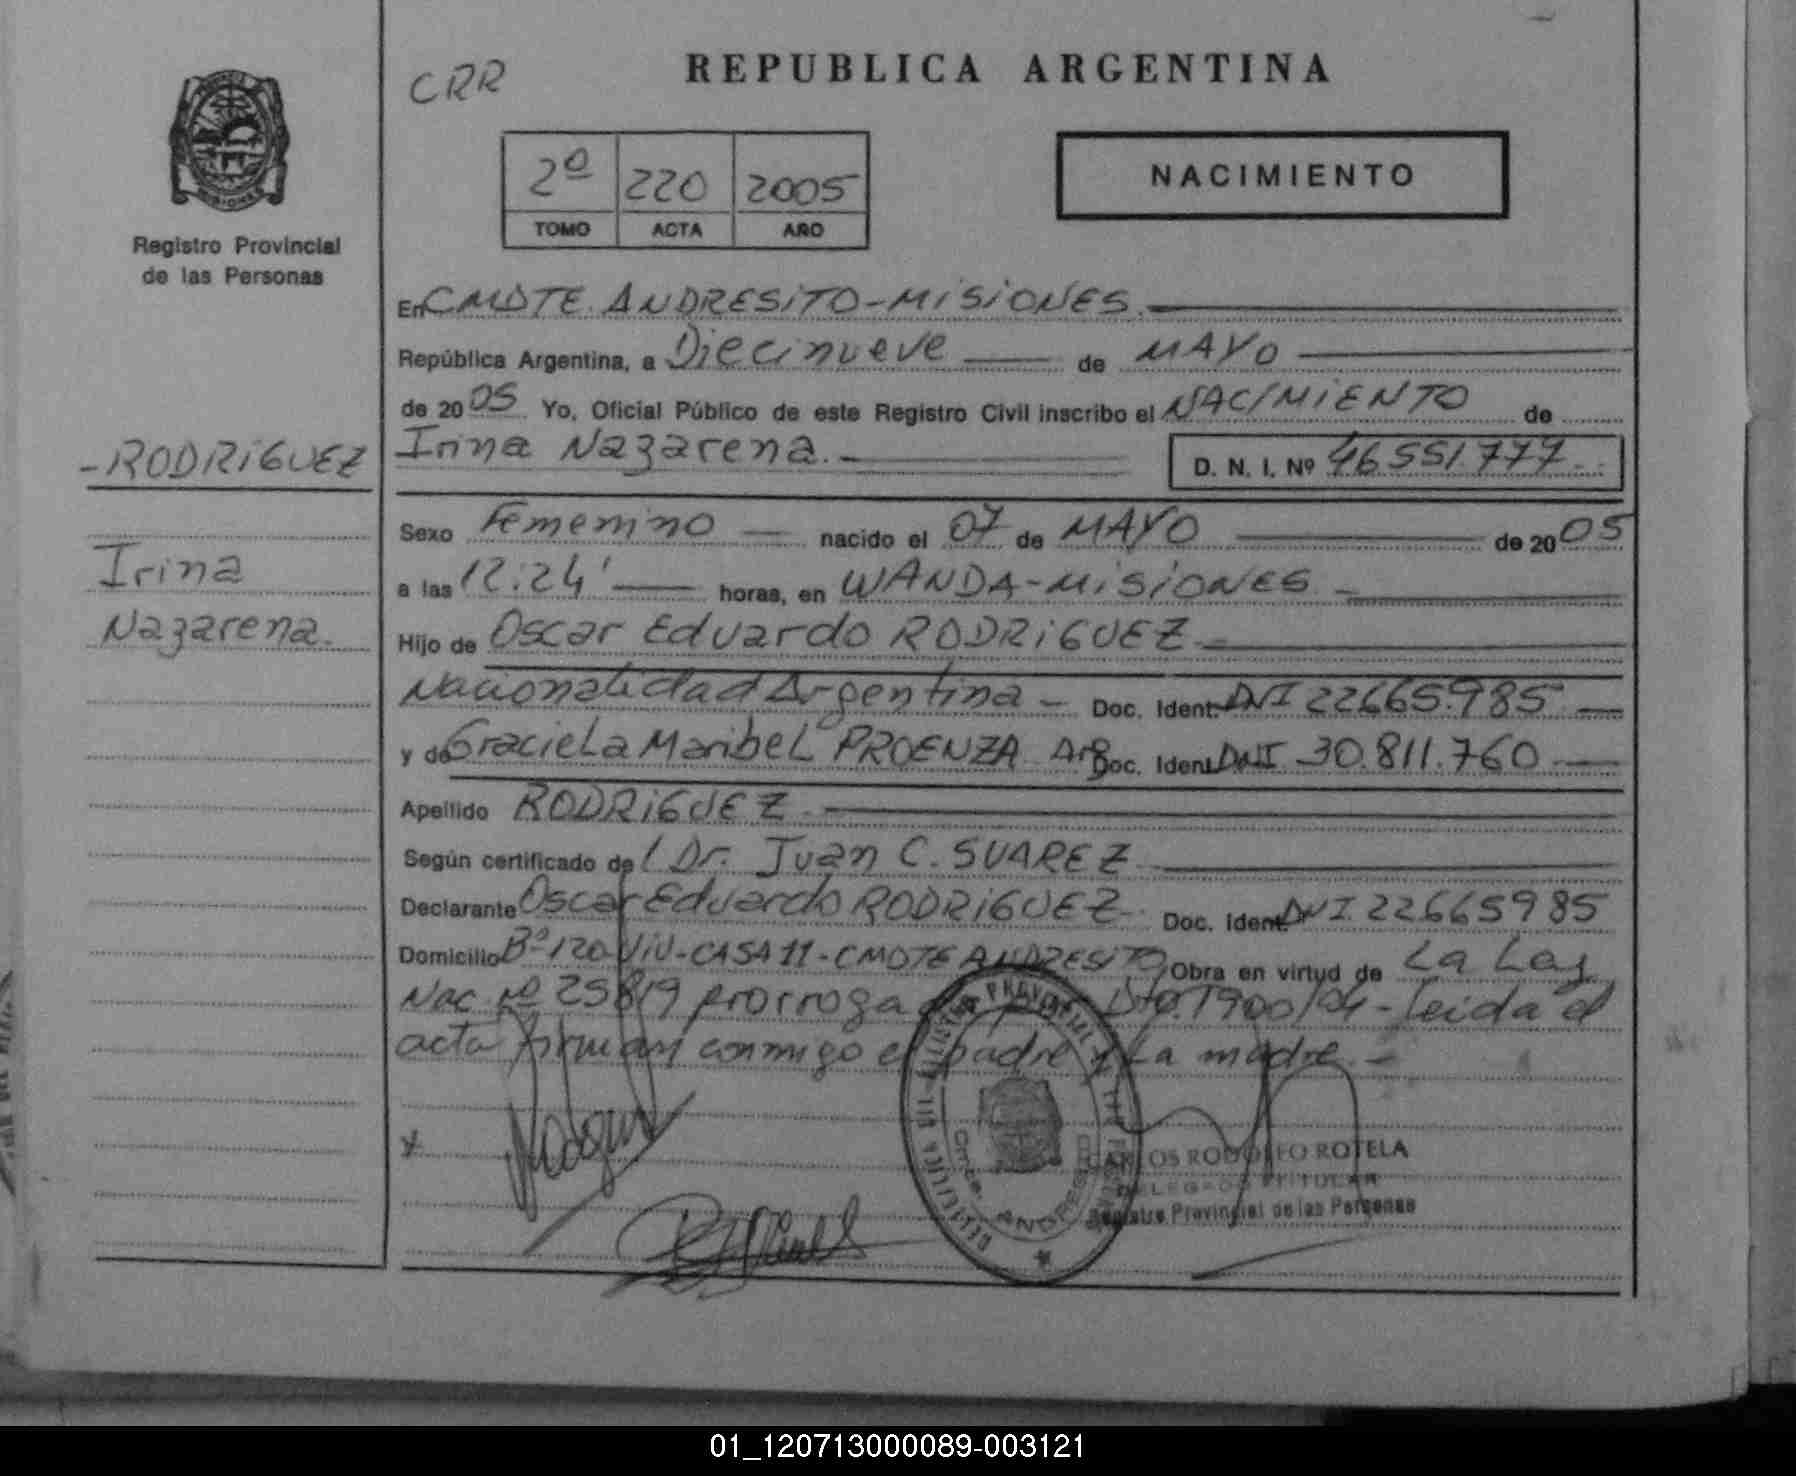 CRR
REPUBLICA ARGENTINA
2º 220 2005
TOMO ACTA AÑO
NACIMIENTO
Registro Provincial
de las Personas
En CMDTE. ANDRESITO-MISIONES.
República Argentina, a Diecinueve de MAYO
de 2005 Yo, Oficial Público de este Registro Civil inscribo el NACIMIENTO de
Irina Nazarena.
D. N. I. Nº 46551.777
-RODRIGUEZ
Irina
Nazarena.
Sexo Femenino nacido el 07 de MAYO de 2005
a las 12:24' horas, en WANDA-MISIONES.
Hijo de Oscar Eduardo RODRIGUEZ
Nacionalidad Argentina Doc. Ident. DNI 22665.985
y de Graciela Maribel PROENZA Arg Doc. Ident. DNI 30.811.760
Apellido RODRIGUEZ
Según certificado de l Dr. Juan C. SUAREZ
Declarante Oscar Eduardo RODRIGUEZ Doc. Ident. DNI 22665985
Domicilio Bº 120-VIV-CASA 11-CMDTE ANDRESITO Obra en virtud de La Ley
Nac. Nº 25819 prorroga Dto. 1900/04-leida el
acta firman conmigo el padre y La madre.-
X
REPUBLICA
PROVINCIAL
CARLOS RODOLFO ROTELA
DELEGADO TITULAR
Registro Provincial de las Personas
01_120713000089-003121